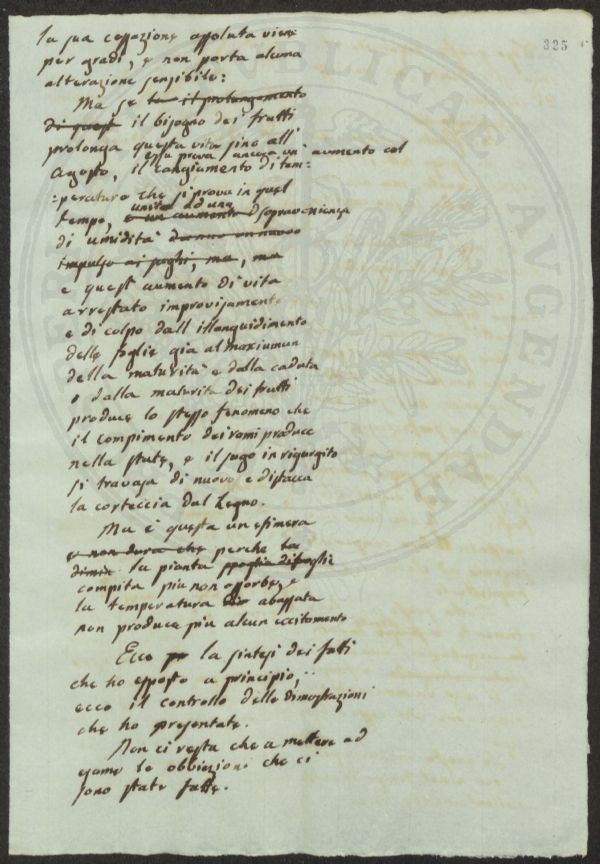 325
la sua cessazione assoluta viene
per gradi, e non porta alcuna
alterazione sensibile:
Ma se il prolungamento
di quest il bisogno dei frutti
prolonga questa vita sino all'
essa prova ancora un aumento col
Agosto, il cangiamento di tem:
:peratura che si prova in quel
unito ad una
tempo, e un aumento sopravenienza
di umidità danno un nuovo
impulso ai sughi, ma, ma
e quest aumento di vita
arrestato improvisamente
e di colpo dall illanguidimento
delle foglie gia al maxiumun
della maturità e dalla caduta
o dalla maturita dei frutti
produce lo stesso fenomeno che
il compimento dei rami produce
nella state, e il sugo in rigurgito
si travasa di nuovo e distacca
la corteccia dal Legno.
Ma è questa un efimera
e non dura che perche la
dimin la pianta spoglia di foglie
compita più non assorbe, e
la temperatura abassata
non produce più alcun eccitamento
Ecco la sintesi dei fatti
che ho esposto a principio,
ecco il controllo delle dimostrazioni
che ho presentate.
Non ci resta che a mettere ad
esame le obbiezioni che ci
sono state fatte.